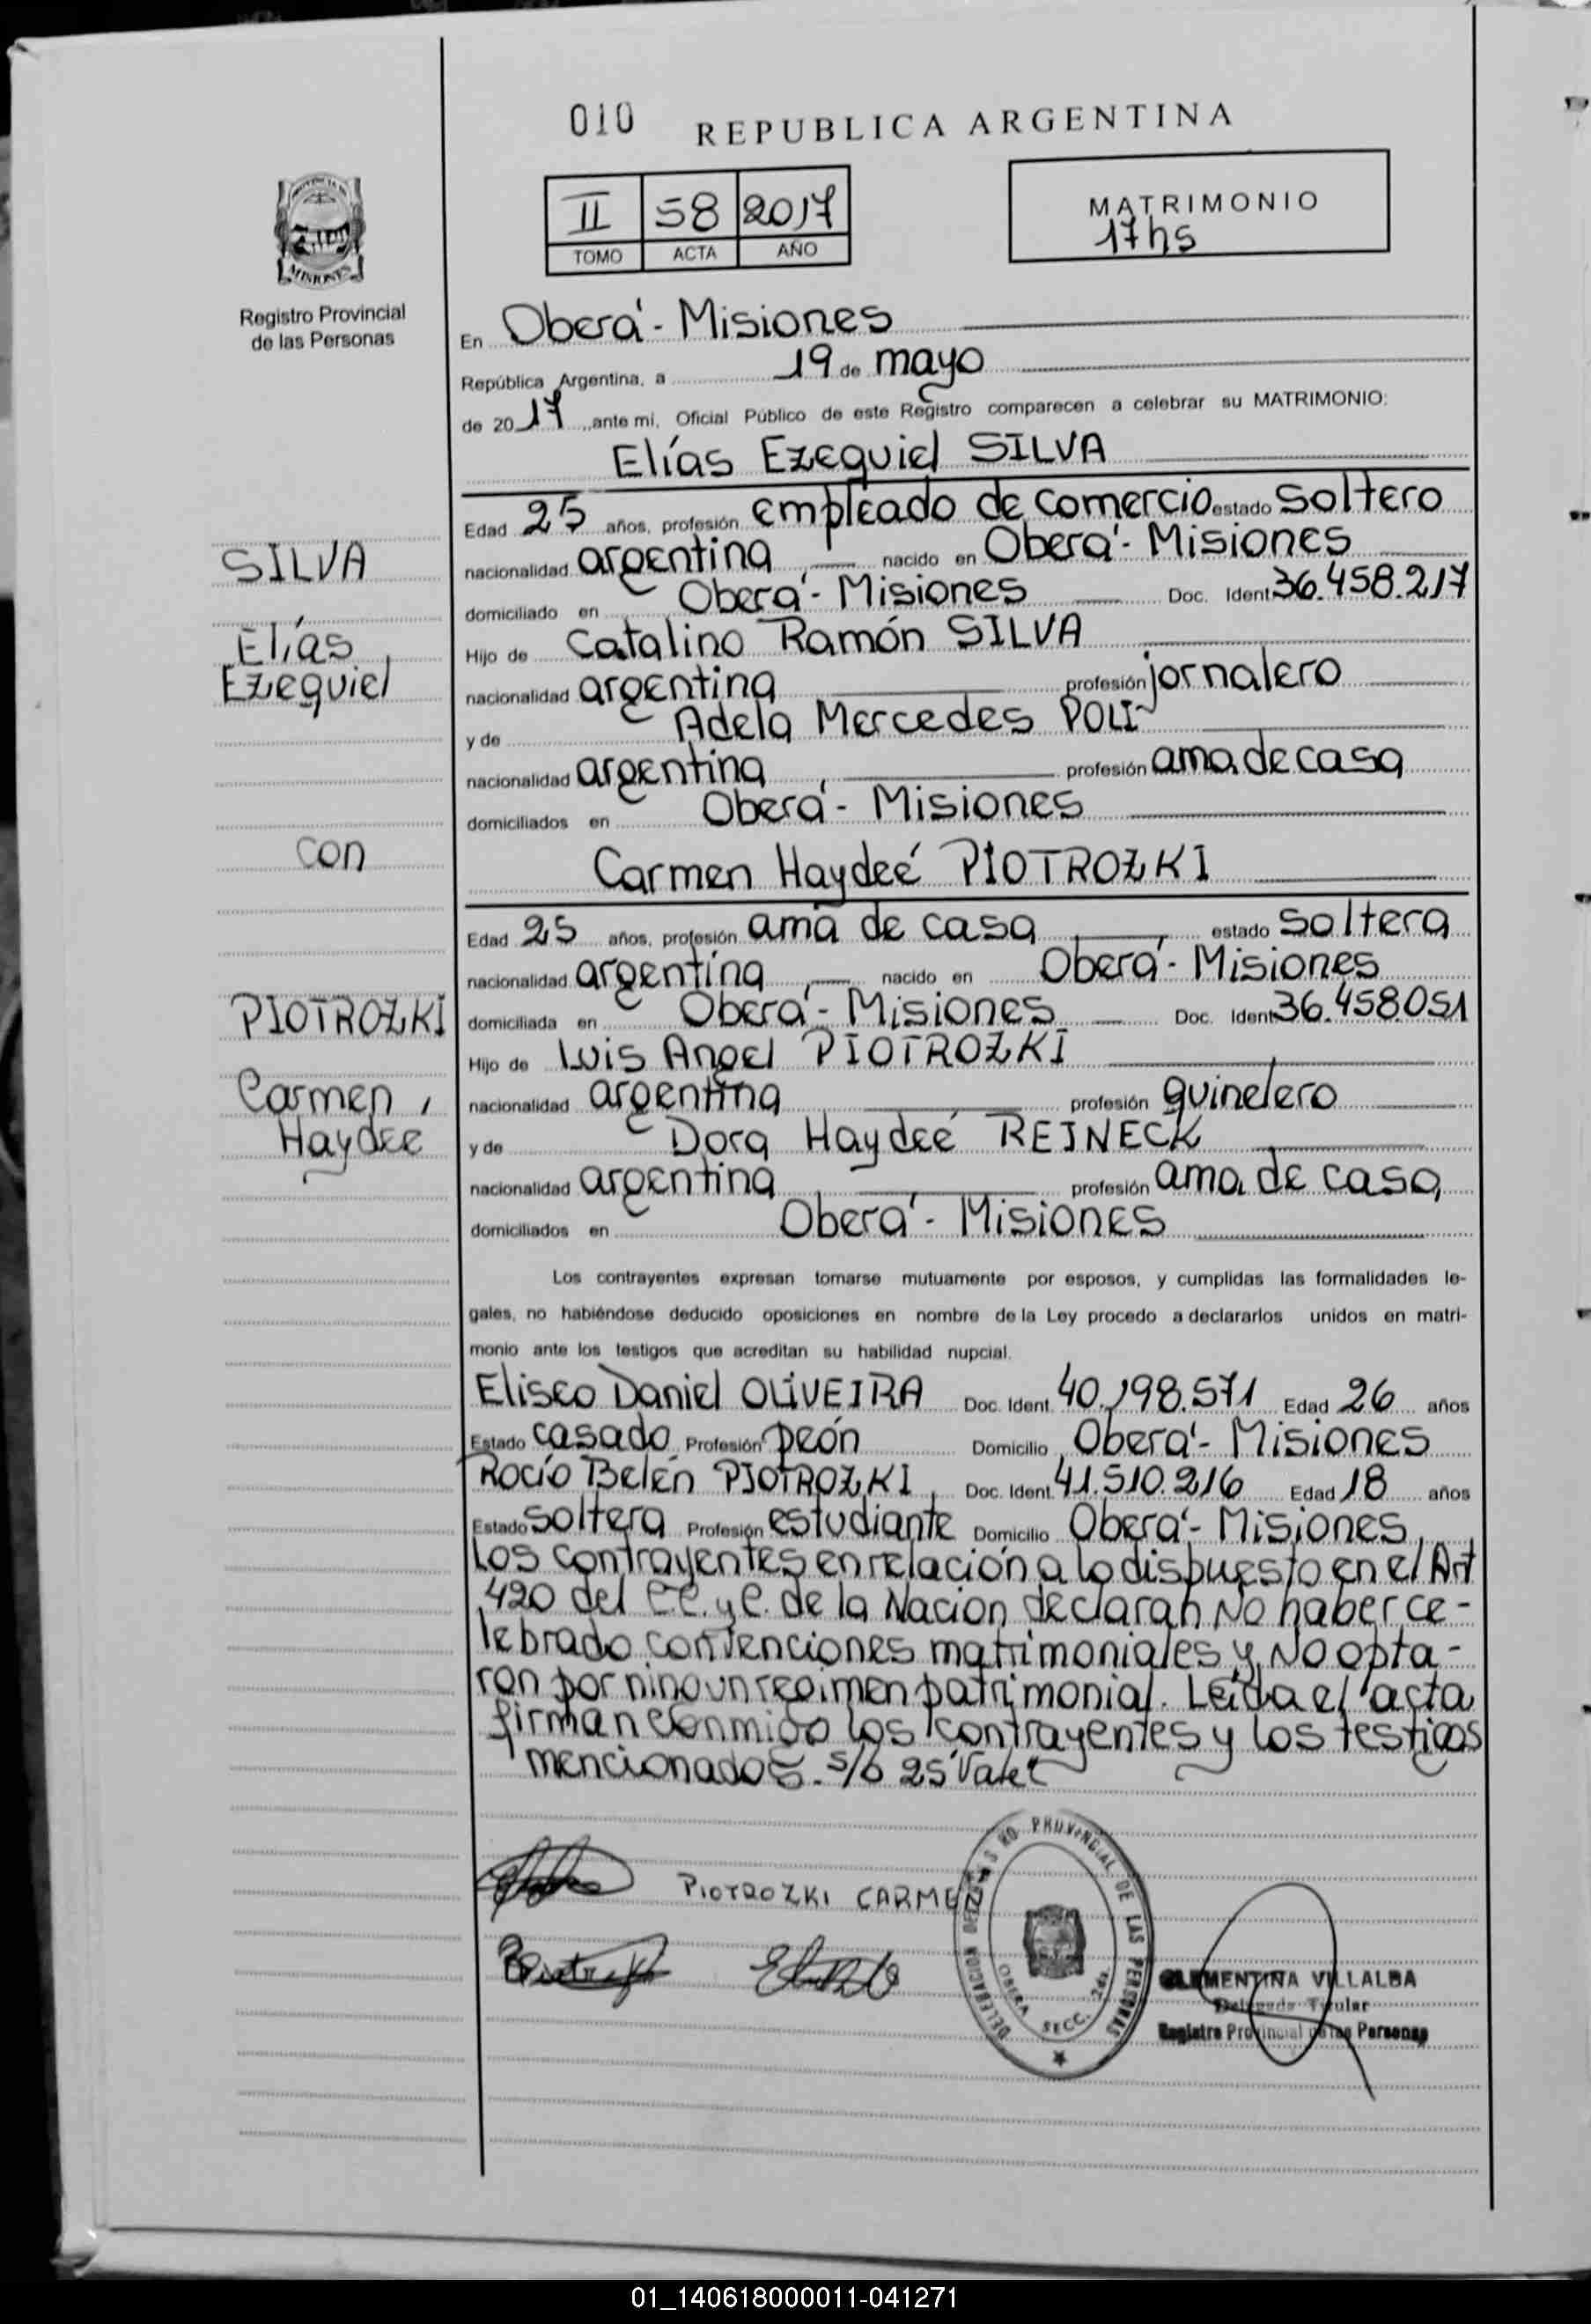 010 REPUBLICA ARGENTINA
II 58 2017
TOMO ACTA AÑO
MATRIMONIO
17hs
PROVINCIA DE
MISIONES
Registro Provincial
de las Personas
En Oberá - Misiones
República Argentina, a 19 de mayo
de 2017, ante mi, Oficial Público de este Registro comparecen a celebrar su MATRIMONIO:
Elías Ezequiel SILVA
Edad 25 años, profesión empleado de comercio estado soltero
nacionalidad argentina nacido en Oberá - Misiones
domiciliado en Oberá - Misiones Doc. Ident. 36.458.217
Hijo de Catalino Ramón SILVA
nacionalidad argentina profesión jornalero
y de Adela Mercedes POLI
nacionalidad argentina, profesión ama de casa
domiciliados en Oberá - Misiones
Carmen Haydeé PIOTROZKI
Edad 25 años, profesión ama de casa estado soltera
nacionalidad argentina nacido en Oberá - Misiones
domiciliada en Oberá - Misiones Doc. Ident. 36.458.051
Hijo de Luis Angel PIOTROZKI
nacionalidad argentina profesión quinelero
y de Dora Haydeé REINECK
nacionalidad argentina, profesión ama de casa
domiciliados en Oberá - Misiones
SILVA
Elías
Ezequiel
con
PIOTROZKI
Carmen
Haydée
Los contrayentes expresan tomarse mutuamente por esposos, y cumplidas las formalidades le-
gales, no habiéndose deducido oposiciones en nombre de la Ley procedo a declararlos unidos en matri-
monio ante los testigos que acreditan su habilidad nupcial.
Eliseo Daniel OLIVEIRA Doc. Ident. 40.198.571 Edad 26 años
Estado casado Profesión peón Domicilio Oberá - Misiones
Rocío Belén PIOTROZKI, Doc. Ident. 41.510.216 Edad 18 años
Estado soltera Profesión estudiante Domicilio Oberá - Misiones,
Los contrayentes en relación a lo dispuesto en el Art
420 del C.C. y C. de la Nación declaran No haber ce-
lebrado convenciones matrimoniales y No opta-
ron por ningun regimen patrimonial. Leída el acta
firman conmigo los contrayentes y los testigos
mencionados. s/b 25 Vale
PIOTROZKI CARMEN
PROVINCIAL DE LAS PERSONAS
DELEGACION
OBERA SECC. 2da.
CLEMENTINA VILLALBA
Delegada Titular
Registro Provincial de las Personas
01_140618000011-041271